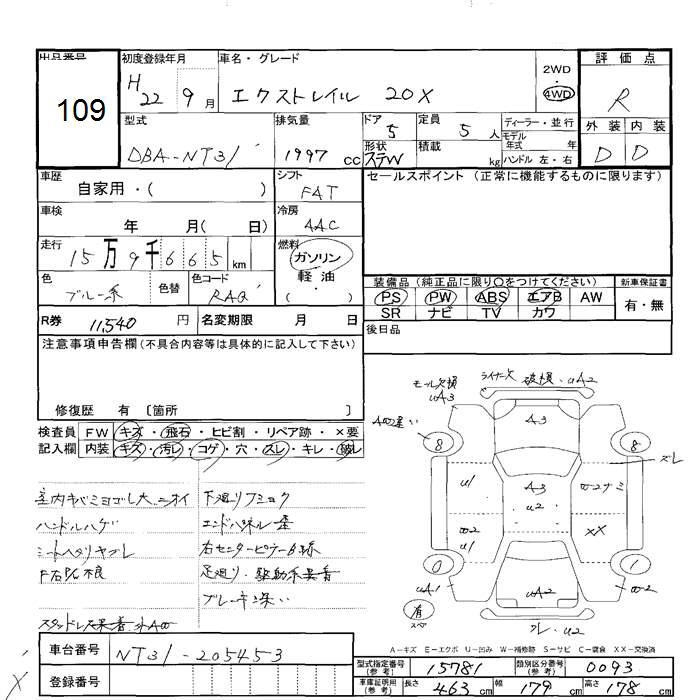 出品番号
109
初度登録年月
H 22 9月
車名・グレード
エクストレイル 20X
2WD
4WD
評価点
R
外装 内装
D D
型式
DBA-NT31
排気量
1997 cc
ドア
5
形状
ステW
定員
5 人
積載
kg
ディーラー・並行
モデル
年式 年
ハンドル 左・右
車歴
自家用・( )
シフト
FAT
セールスポイント (正常に機能するものに限ります)
車検
年 月( 日)
冷房
AAC
走行
15万9千665 km
燃料
ガソリン
軽油
( )
色
ブルー系
色替
色コード
RAQ
装備品 (純正品に限り○をつけてください)
新車保証書
PS PW ABS エアB AW
SR ナビ TV カワ
有・無
R券 11,540 円
名変期限 月 日
後日品
注意事項申告欄(不具合内容等は具体的に記入して下さい)
修復歴 有 〔箇所 〕
検査員
記入欄
FW キズ・飛石・ヒビ割・リペア跡・×要
内装 キズ・汚レ・コゲ・穴・スレ・キレ・破レ
室内キバミヨゴレ大 ニオイ
下廻りフショク
ハンドルハゲ
エンドパネル
シートヘタリヤブレ
右センターピラー
足廻り・駆動系異音
ブレーキ
モール欠損
uA3
ライナー欠
破損・uA2
A3
8
8
スレ
u1
A3
u2
ナミ
u1
XX
0
1
uA1
uA2
有
スペ
u2
A-キズ E-エクボ U-凹み W-補修跡 S-サビ C-腐食 XX-交換済
車台番号
NT31-205453
登録番号
型式指定番号
(参考)
15781
類別区分番号
(参考)
0093
車庫証明用
(参考)
長さ 463 cm
幅 179 cm
高さ 178 cm
X